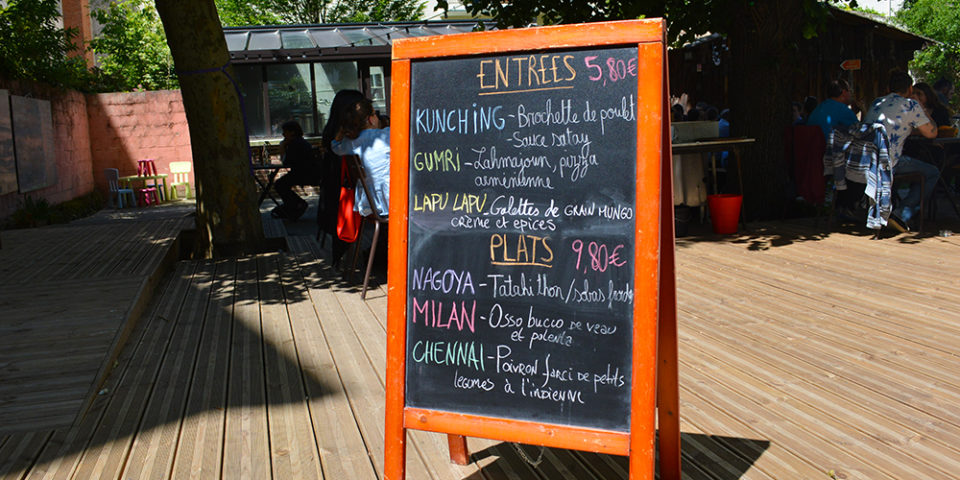 ENTREES 5,80€
KUNCHING - Brochette de poulet
- Sauce satay
GUMRI - Lahmajoun, pizza
arménienne
LAPU LAPU - Galettes de GRAIN MUNGO
crème et epices
PLATS 9,80€
NAGOYA - Tataki thon/sobas froids
MILAN - Osso bucco de veau
et polenta
CHENNAI - Poivron farci de petits
légumes à l'indienne